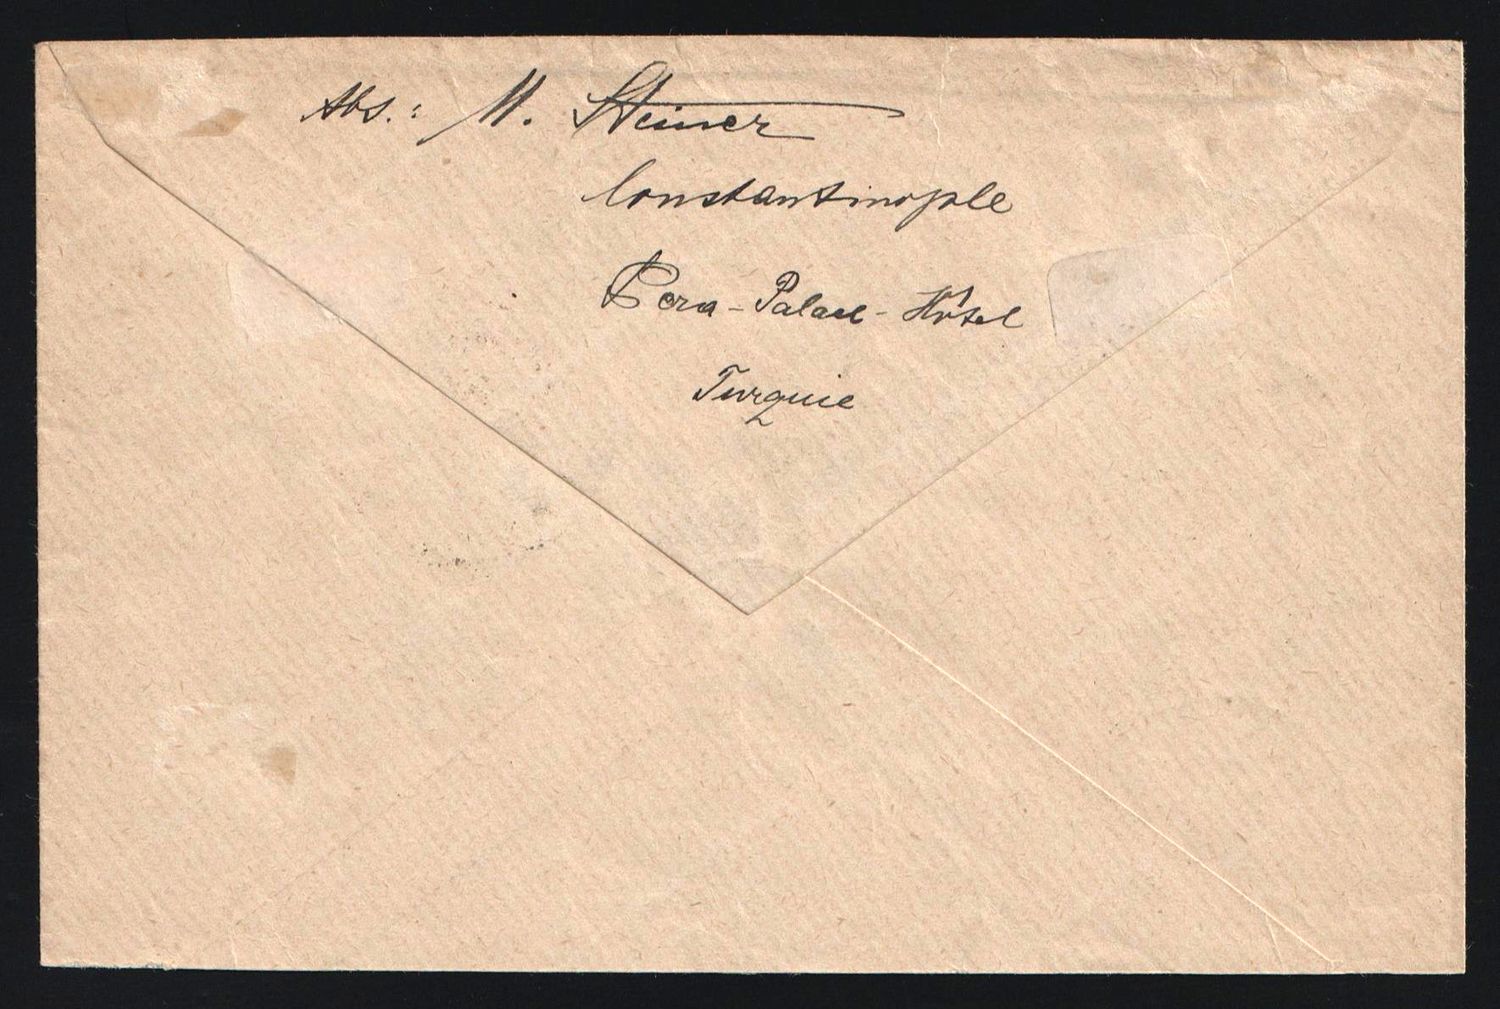 Abs.: M. Steiner
Constantinople
Pera-Palace-Hôtel
Turquie